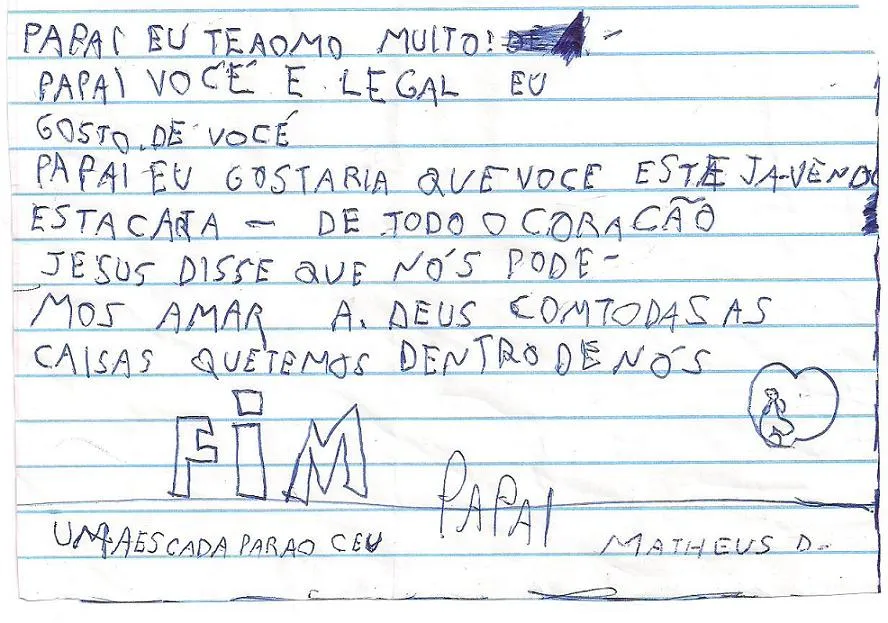 PAPAI EU TEAOMO MUITO!
PAPAI VOCÊ E LEGAL EU
GOSTO.DE VOCÉ
PAPAI EU GOSTARIA QUE VOCE ESTEJA-VENDO
ESTA CARTA — DE TODO O CORACÃO
JESUS DISSE QUE NÓS PODE-
MOS AMAR A. DEUS COMTODAS AS
CAISAS QUETEMOS DENTRO DE NÓS
FIM
PAPAI
UMA ESCADA PARA O CEU
MATHEUS D-